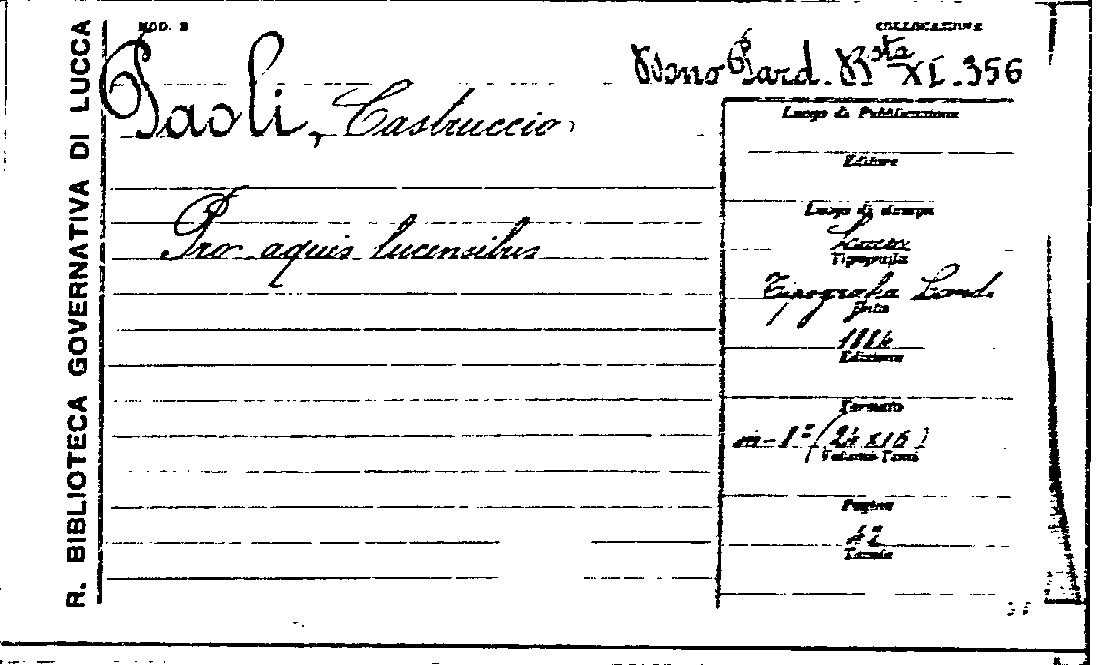 R. BIBLIOTECA GOVERNATIVA DI LUCCA
MOD. B
COLLOCAZIONE
XI.356
Paoli, Castruccio
Pro aquis lucensibus
Luogo di Pubblicazione
Editore
Luogo di stampa
Lucca
Tipografia
Tipografia Land.
Data
Edizione
Formato
(24x16)
Volume-Tomi
Pagine
Tavole